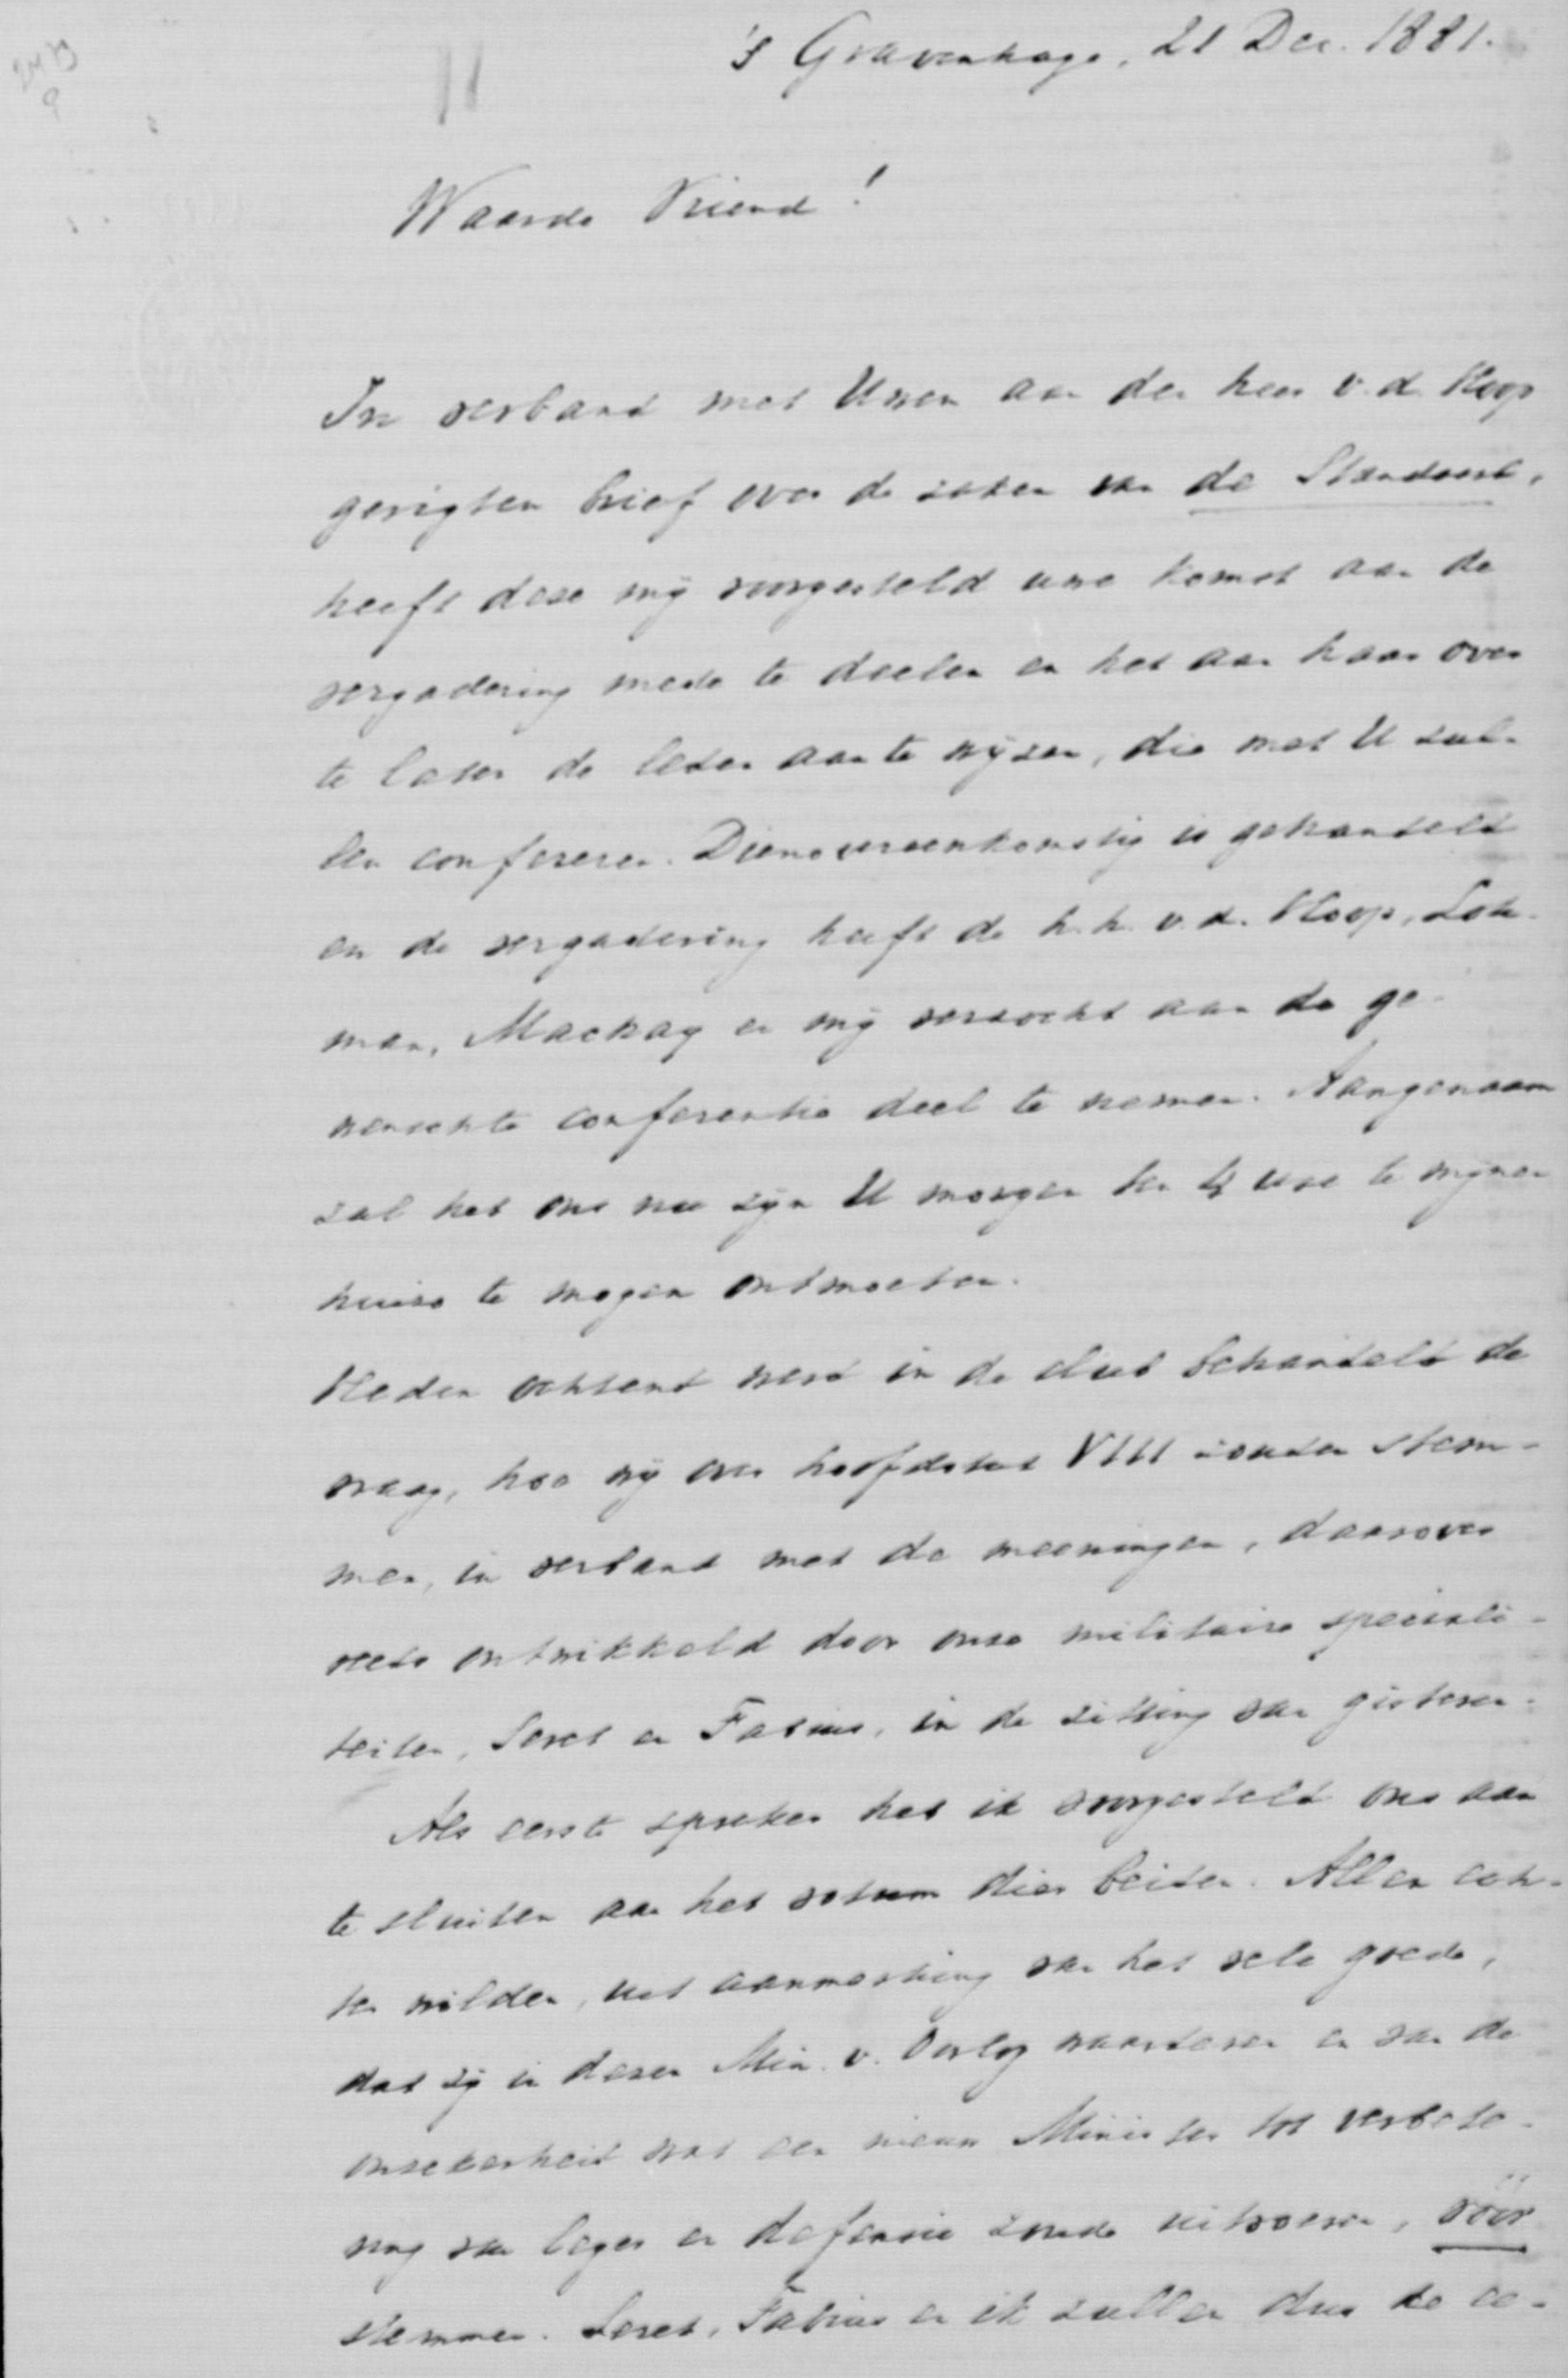 's Gravenhage, 21 Dec. 1881.
Waarde Vriend!
In verband met Uwen aan den heer v. d. Hoop
gerigten brief over de zaken van de Standaard,
heeft deze mij voorgesteld uwe komst aan de
vergadering mede te deelen en het aan haar over
te laten de leden aan te wijzen, die met U zul-
len confereren. Dienovereenkomstig is gehandeld
en de vergadering heeft de h.h. v. d. Hoop, Loh-
man, Mackay en mij verzocht aan de ge-
wenschte conferentie deel te nemen. Aangenaam
zal het ons nu zijn U morgen ten ure te mijnen
huize te mogen ontmoeten.
Heden ochtend werd in de club behandeld de
vraag, hoe wij over hoofdstuk VIII zouden stem-
men, in verband met de meeningen, daarover
reeds ontwikkeld door onze militaire speciali-
teiten, Seret en Fabius, in de zitting van gisteren.
Als eerste spreker heb ik voorgesteld ons aan
te sluiten aan het votum dier beiden. Allen ech-
ter wilden, uit aanmerking van het vele goede,
dat zij in dezen Min. v. Oorlog waarderen en van de
onzekerheid wat een nieuw Minister tot verbete-
ring van leger en defensie zoude uitvoeren, vóór
stemmen. Seret, Fabius en ik zullen dus de ee-